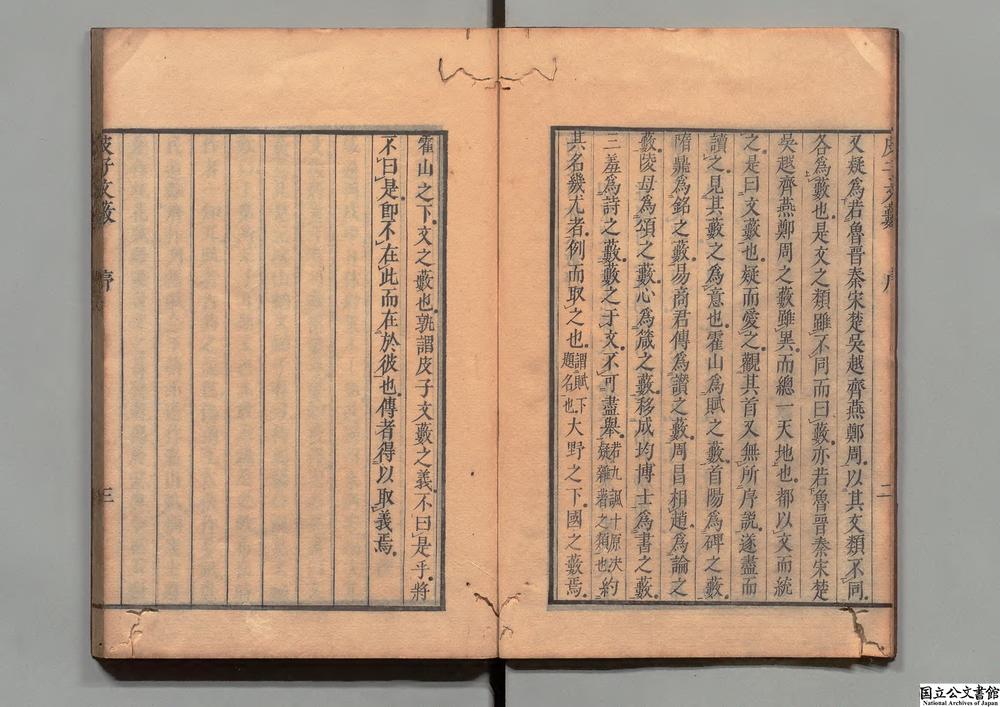 皮子文藪 序 二
又疑爲若魯晉秦宋楚吳越齊燕鄭周以其文類不同
各爲藪也是文之類雖不同而曰藪亦若魯晉秦宋楚
吳越齊燕鄭周之藪雖異而總一天地也都以文而統
之是曰文藪也疑而愛之觀其首又無所序説遂盡而
讀之見其藪之爲意也霍山爲賦之藪首陽爲碑之藪
隋鼎爲銘之藪易商君傳爲讚之藪周昌相趙爲論之
藪陵母爲頌之藪心爲箴之藪移成均博士爲書之藪
三羞爲詩之藪藪之于文不可盡舉若九諷十原決疑雜著之類也約
其名幾尤者例而取之也謂賦下題名也大野之下國之藪焉
霍山之下文之藪也孰謂皮子文藪之義不曰是乎將
不曰是卽不在此而在於彼也傳者得以取義焉
皮子文藪 序 三
国立公文書館
National Archives of Japan